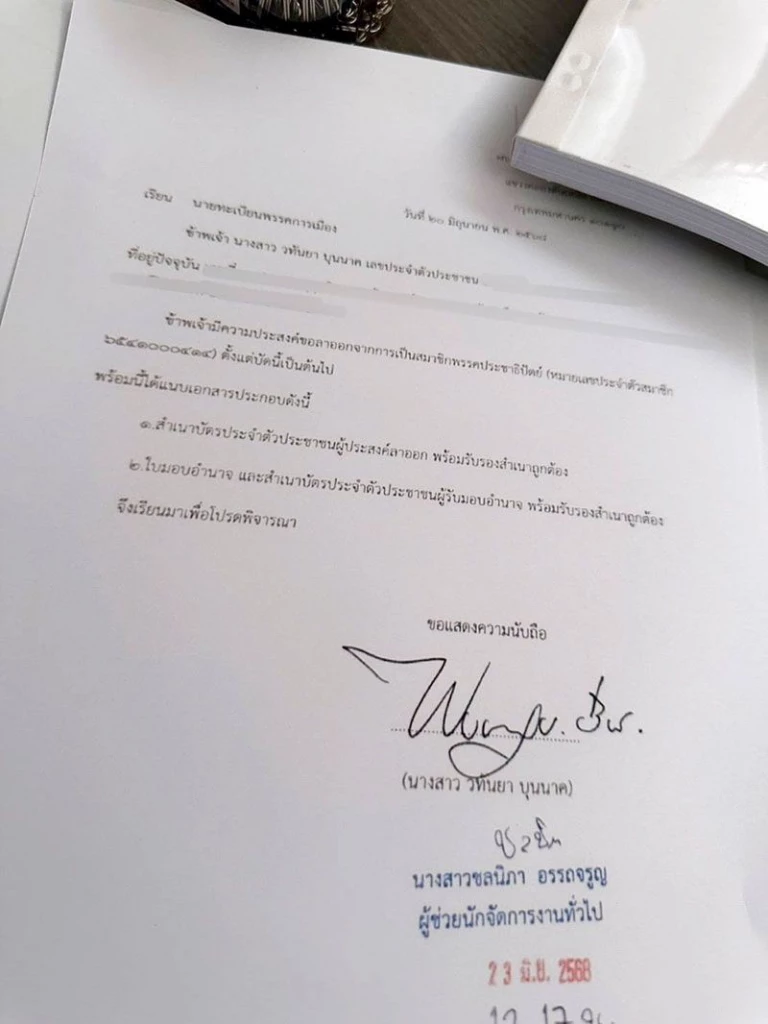 กรุงเทพมหานคร
วันที่ ๒๐ มิถุนายน พ.ศ. ๒๕๖๘
เรียน นายทะเบียนพรรคการเมือง
ข้าพเจ้า นางสาว วทันยา บุนนาค เลขประจำตัวประชาชน
ที่อยู่ปัจจุบัน
ข้าพเจ้ามีความประสงค์ขอลาออกจากการเป็นสมาชิกพรรคประชาธิปัตย์ (หมายเลขประจำตัวสมาชิก
๖๕๔๑๐๐๐๔๑๔) ตั้งแต่บัดนี้เป็นต้นไป
พร้อมนี้ได้แนบเอกสารประกอบดังนี้
๑.สำเนาบัตรประจำตัวประชาชนผู้ประสงค์ลาออก พร้อมรับรองสำเนาถูกต้อง
๒.ใบมอบอำนาจ และสำเนาบัตรประจำตัวประชาชนผู้รับมอบอำนาจ พร้อมรับรองสำเนาถูกต้อง
จึงเรียนมาเพื่อโปรดพิจารณา
ขอแสดงความนับถือ
(นางสาว วทันยา บุนนาค)
นางสาวชลนิภา อรรถจรูญ
ผู้ช่วยนักจัดการงานทั่วไป
23 มิ.ย. 2568